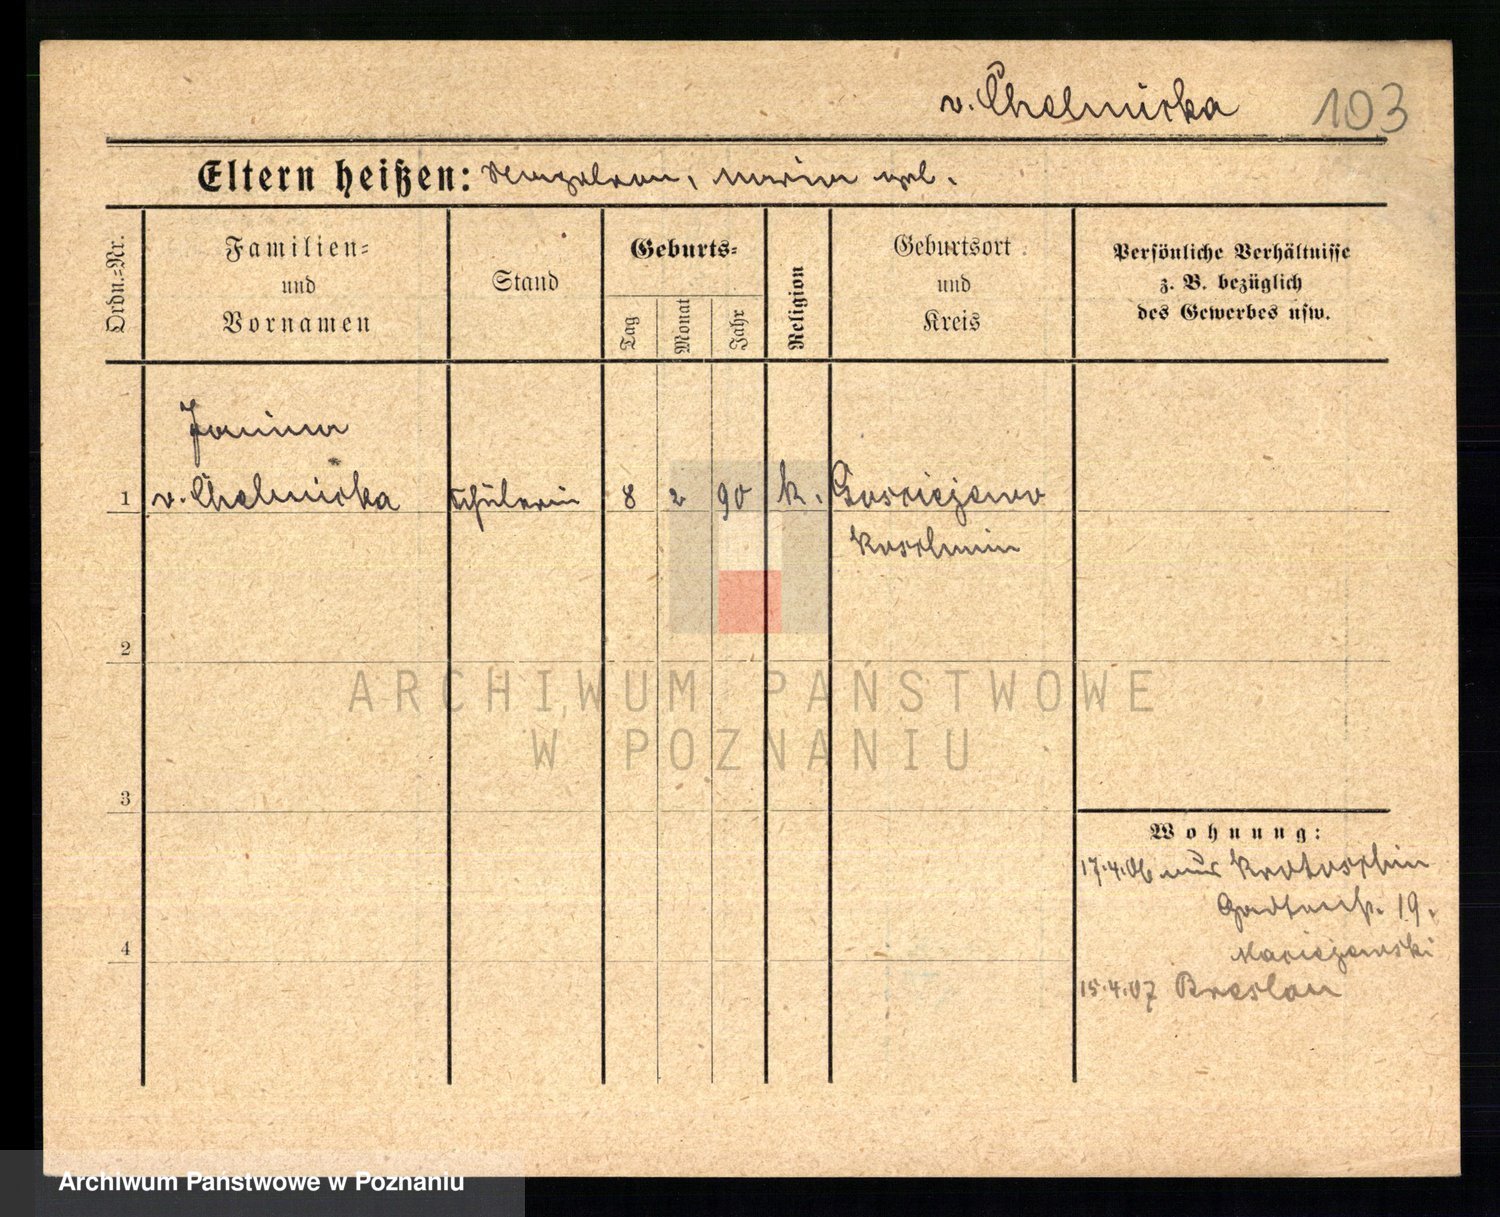 v. Chelmicka 103
Eltern heißen: Napoleon, Maria geb.
Ordn.-Nr.
Familien-
und
Vornamen
Stand
Geburts-
Tag
Monat
Jahr
Religion
Geburtsort
und
Kreis
Persönliche Verhältnisse
z. B. bezüglich
des Gewerbes usw.
Janina
1 v. Chelmicka Schülerin 8 2 90 k. Gosciejewo
Koschmin
2
ARCHIWUM PAŃSTWOWE
W POZNANIU
3
Wohnung:
17.4.06 aus Krotoschin
19.
Maciejewski
4
15.4.07 Breslau
Archiwum Państwowe w Poznaniu